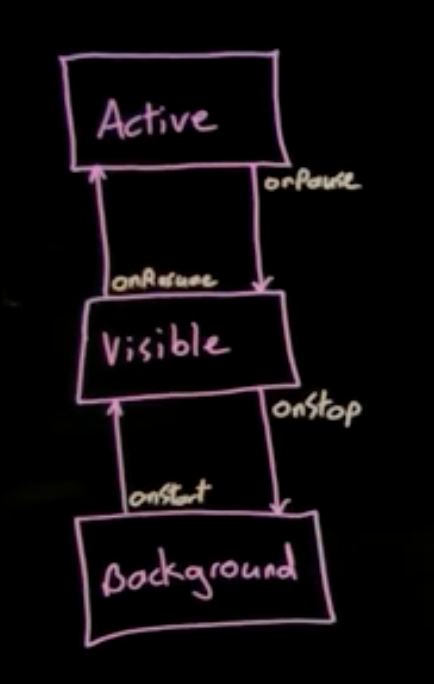 Active
onPause
onResume
Visible
onStop
onStart
Background